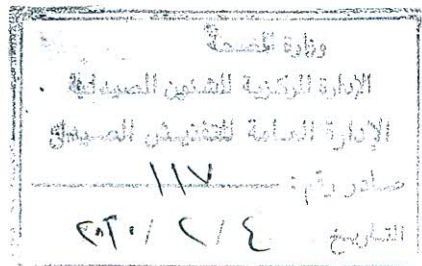 وزارة الصحة
الإدارة المركزية للشئون الصيدلية
الإدارة العامة للتفتيش الصيدلي
صادر رقم : ١١٧
التاريخ ٤ / ٢ /